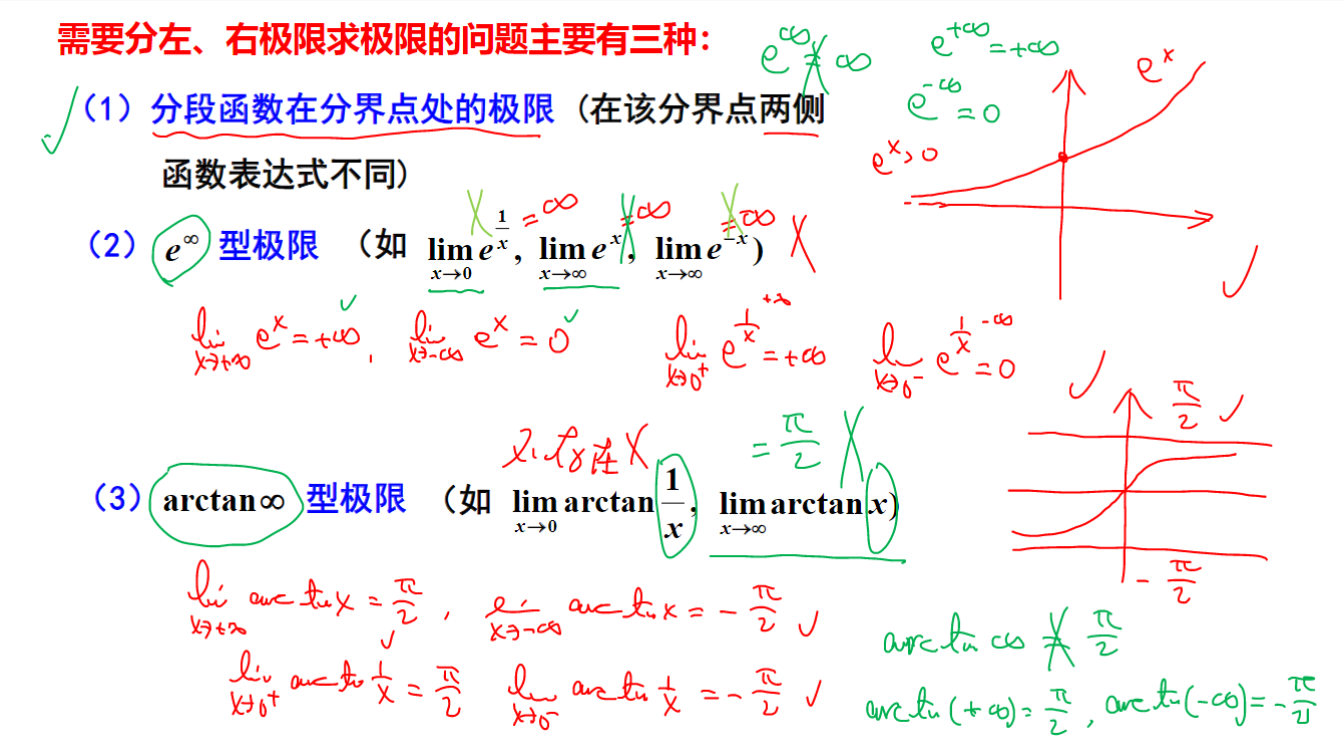 需要分左、右极限求极限的问题主要有三种：
e^∞ = ∞
e^{+∞} = +∞
e^{-∞} = 0
e^x
e^x > 0
（1）分段函数在分界点处的极限 (在该分界点两侧
函数表达式不同)
= ∞ = ∞ = ∞
（2） e^∞ 型极限 （如 lim_{x→0} e^{1/x}, lim_{x→∞} e^x, lim_{x→∞} e^{-x})
lim_{x→+∞} e^x = +∞, lim_{x→-∞} e^x = 0
lim_{x→0^+} e^{1/x} = +∞ lim_{x→0^-} e^{1/x} = 0
+∞ -∞
π/2
不存在 = π/2
（3） arctan∞ 型极限 （如 lim_{x→0} arctan 1/x, lim_{x→∞} arctan x)
-π/2
lim_{x→+∞} arctan x = π/2, lim_{x→-∞} arctan x = -π/2
arctan ∞ = π/2
lim_{x→0^+} arctan 1/x = π/2 lim_{x→0^-} arctan 1/x = -π/2
arctan(+∞) = π/2, arctan(-∞) = -π/2